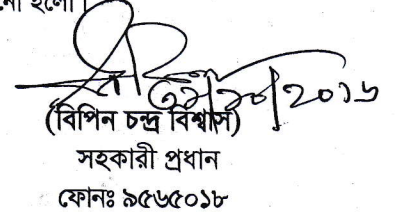 হলো।
২০১৬
(বিপিন চন্দ্র বিশ্বাস)
সহকারী প্রধান
ফোনঃ ৯৫৬৫০১৮